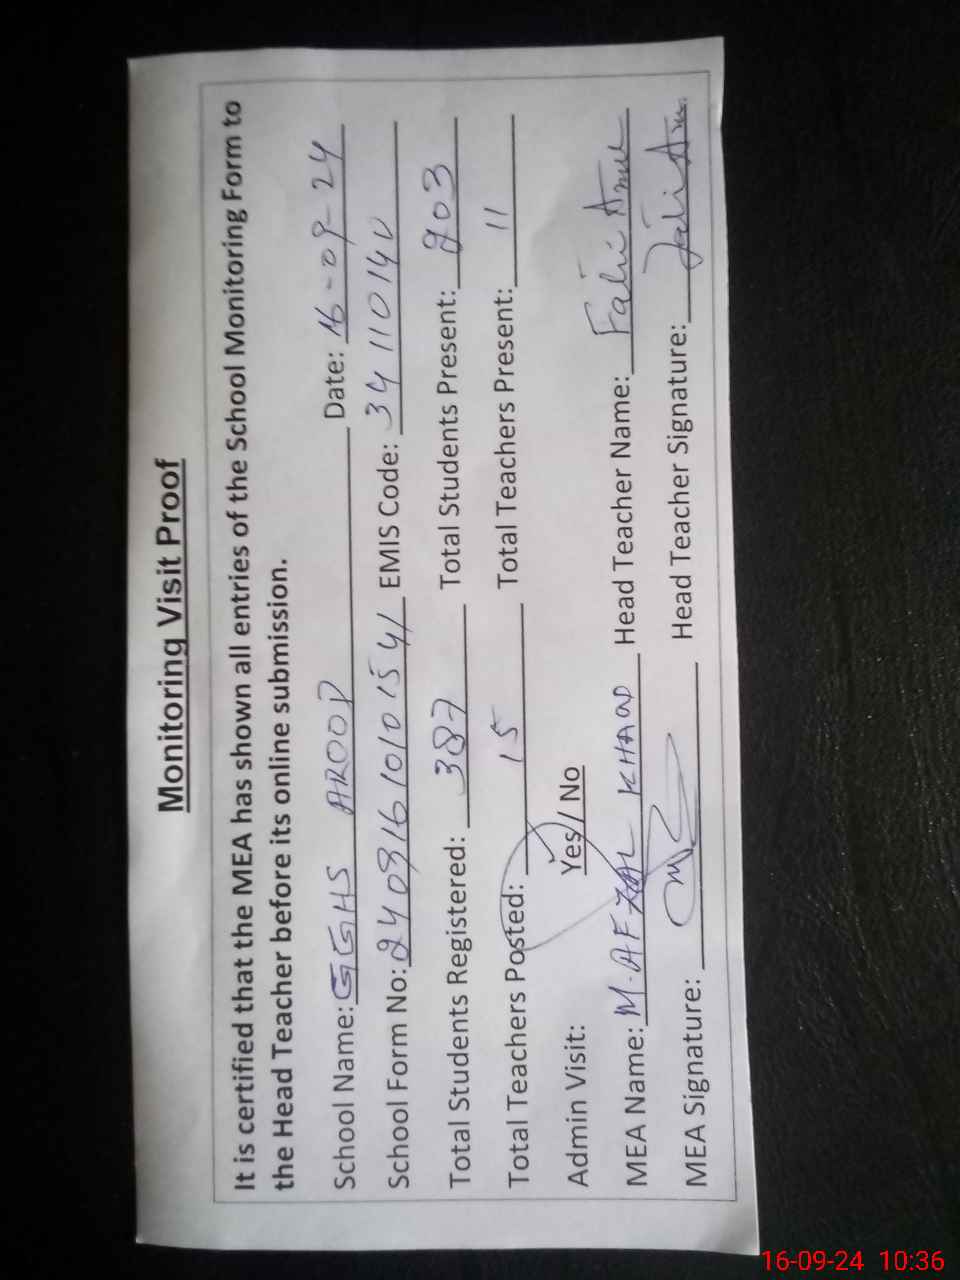 Monitoring Visit Proof
It is certified that the MEA has shown all entries of the School Monitoring Form to
the Head Teacher before its online submission.
School Name: GGHS AROOP Date: 16-09-24
School Form No: 24091610101541 EMIS Code: 34110140
Total Students Registered: 387 Total Students Present: 203
Total Teachers Posted: 15 Total Teachers Present: 11
Admin Visit: Yes / No
MEA Name: M. AFZAL KHAN Head Teacher Name:
MEA Signature: Head Teacher Signature:
16-09-24 10:36